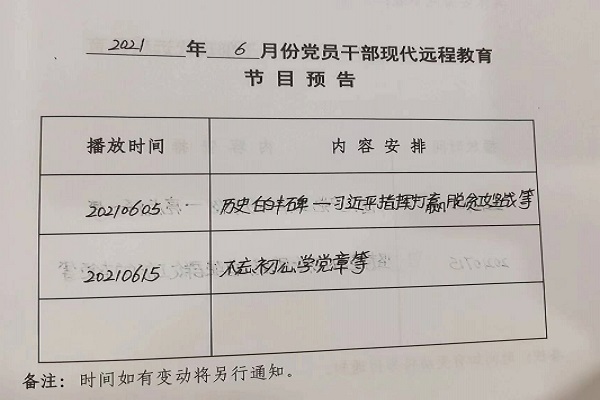 2021 年 6 月份党员干部现代远程教育
节目预告
播放时间 内容安排
20210605 历史的丰碑——习近平指挥打赢脱贫攻坚战等
20210615 不忘初心学党章等
备注：时间如有变动将另行通知。